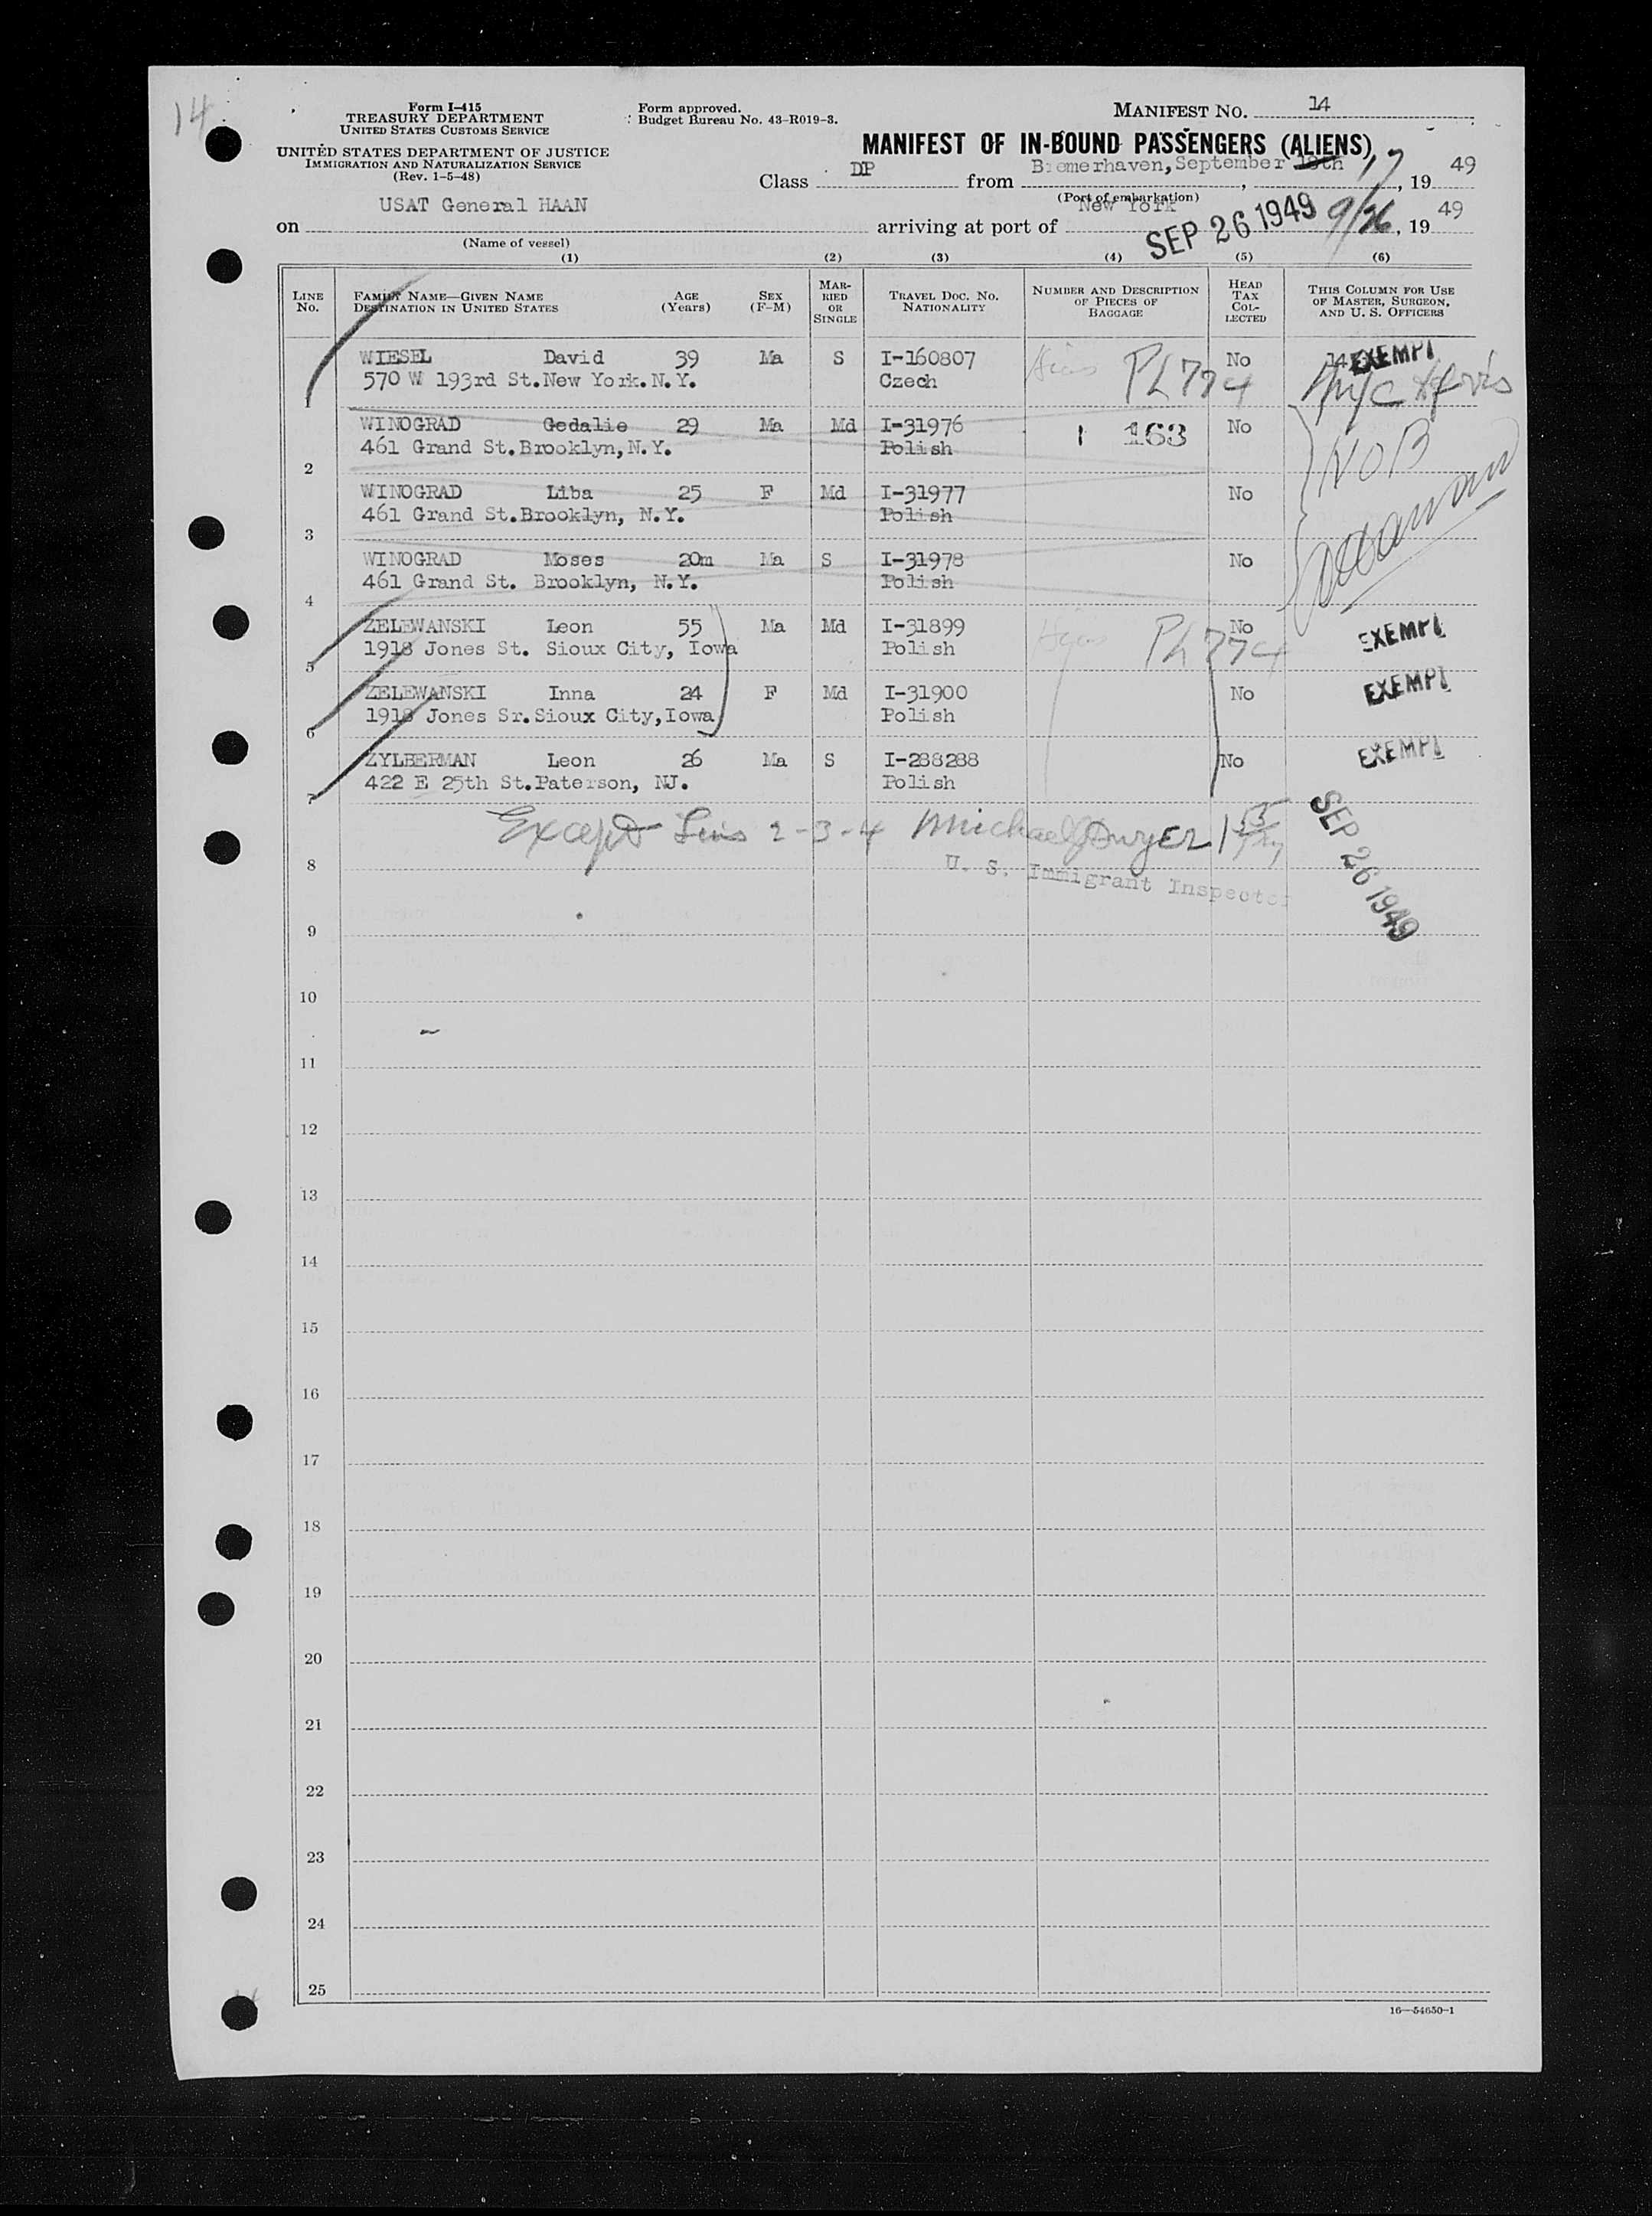 14
Form I-415
TREASURY DEPARTMENT
UNITED STATES CUSTOMS SERVICE
UNITED STATES DEPARTMENT OF JUSTICE
IMMIGRATION AND NATURALIZATION SERVICE
(Rev. 1-5-48)
Form approved.
Budget Bureau No. 43-R019-3.
MANIFEST NO. 14
MANIFEST OF IN-BOUND PASSENGERS (ALIENS)
Class DP from Bremerhaven, September 18th 17, 1949
(Port of embarkation)
on USAT General HAAN arriving at port of New York SEP 26 1949 9/26, 1949
(Name of vessel)
(1) (2) (3) (4) (5) (6)
LINE No. FAMILY NAME—GIVEN NAME DESTINATION IN UNITED STATES AGE (Years) SEX (F-M) MARRIED OR SINGLE TRAVEL DOC. NO. NATIONALITY NUMBER AND DESCRIPTION OF PIECES OF BAGGAGE HEAD TAX COLLECTED THIS COLUMN FOR USE OF MASTER, SURGEON, AND U. S. OFFICERS
WIESEL David 39 Ma S I-160807 Ph 774 No EXEMPT
1 570 W 193rd St.New York.N.Y. Czech
WINOGRAD Gedalie 29 Ma Md I-31976 1 163 No
2 461 Grand St.Brooklyn,N.Y. Polish NOB
WINOGRAD Liba 25 F Md I-31977 No
3 461 Grand St.Brooklyn, N.Y. Polish
WINOGRAD Moses 20m Ma S I-31978 No
4 461 Grand St. Brooklyn, N.Y. Polish
ZELEWANSKI Leon 55 Ma Md I-31899 Ph 774 No EXEMPT
5 1918 Jones St. Sioux City, Iowa Polish
ZELEWANSKI Inna 24 F Md I-31900 No EXEMPT
6 1918 Jones Sr.Sioux City,Iowa Polish
ZYLBERMAN Leon 26 Ma S I-288288 No EXEMPT
7 422 E 25th St.Paterson, NJ. Polish
Except Lins 2-3-4 Michael J Dwyer
8 U. S. Immigrant Inspector SEP 26 1949
9
10
11
12
13
14
15
16
17
18
19
20
21
22
23
24
25
16—54650-1